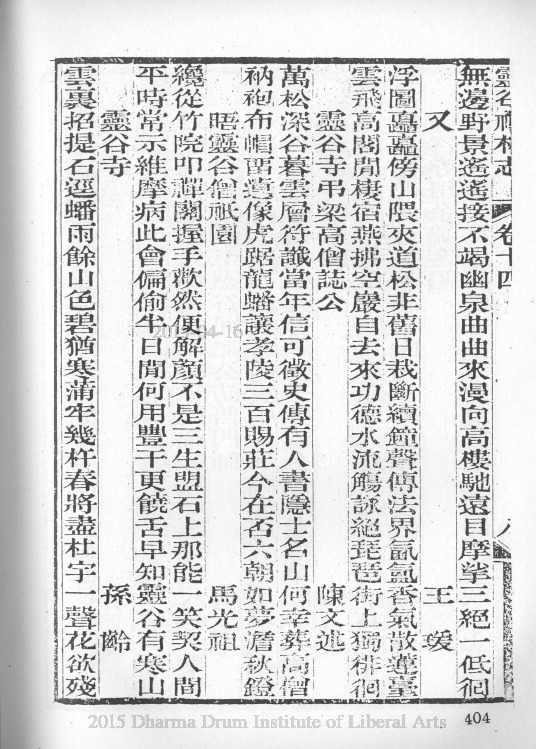 靈谷禪林志 卷十四 八
無邊野景遙遙接不竭幽泉曲曲來漫向高樓馳遠目摩挲三絕一低徊
又 王瑗
浮圖矗矗傍山隈夾道松非舊日栽斷續鐘聲傳法界氤氳香氣散蓮臺
雲飛高閣閒棲宿燕拂空巖自去來功德水流觴詠絕琵琶街上獨徘徊
靈谷寺弔梁高僧誌公 陳文述
萬松深谷暮雲層符讖當年信可徵史傳有人書隱士名山何幸葬高僧
衲袍布帽畱遺像虎踞龍蟠讓孝陵三百賜莊今在否六朝如夢澹秋鐙
晤靈谷僧祇園 馬光祖
纔從竹院叩禪關握手歡然便解顏不是三生盟石上那能一笑契人間
平時常示維摩病此會偏偷半日閒何用豐干更饒舌早知靈谷有寒山
靈谷寺 孫齡
雲裏招提石逕蟠雨餘山色碧猶寒蒲牢幾杵春將盡杜宇一聲花欲殘
2015 Dharma Drum Institute of Liberal Arts
404